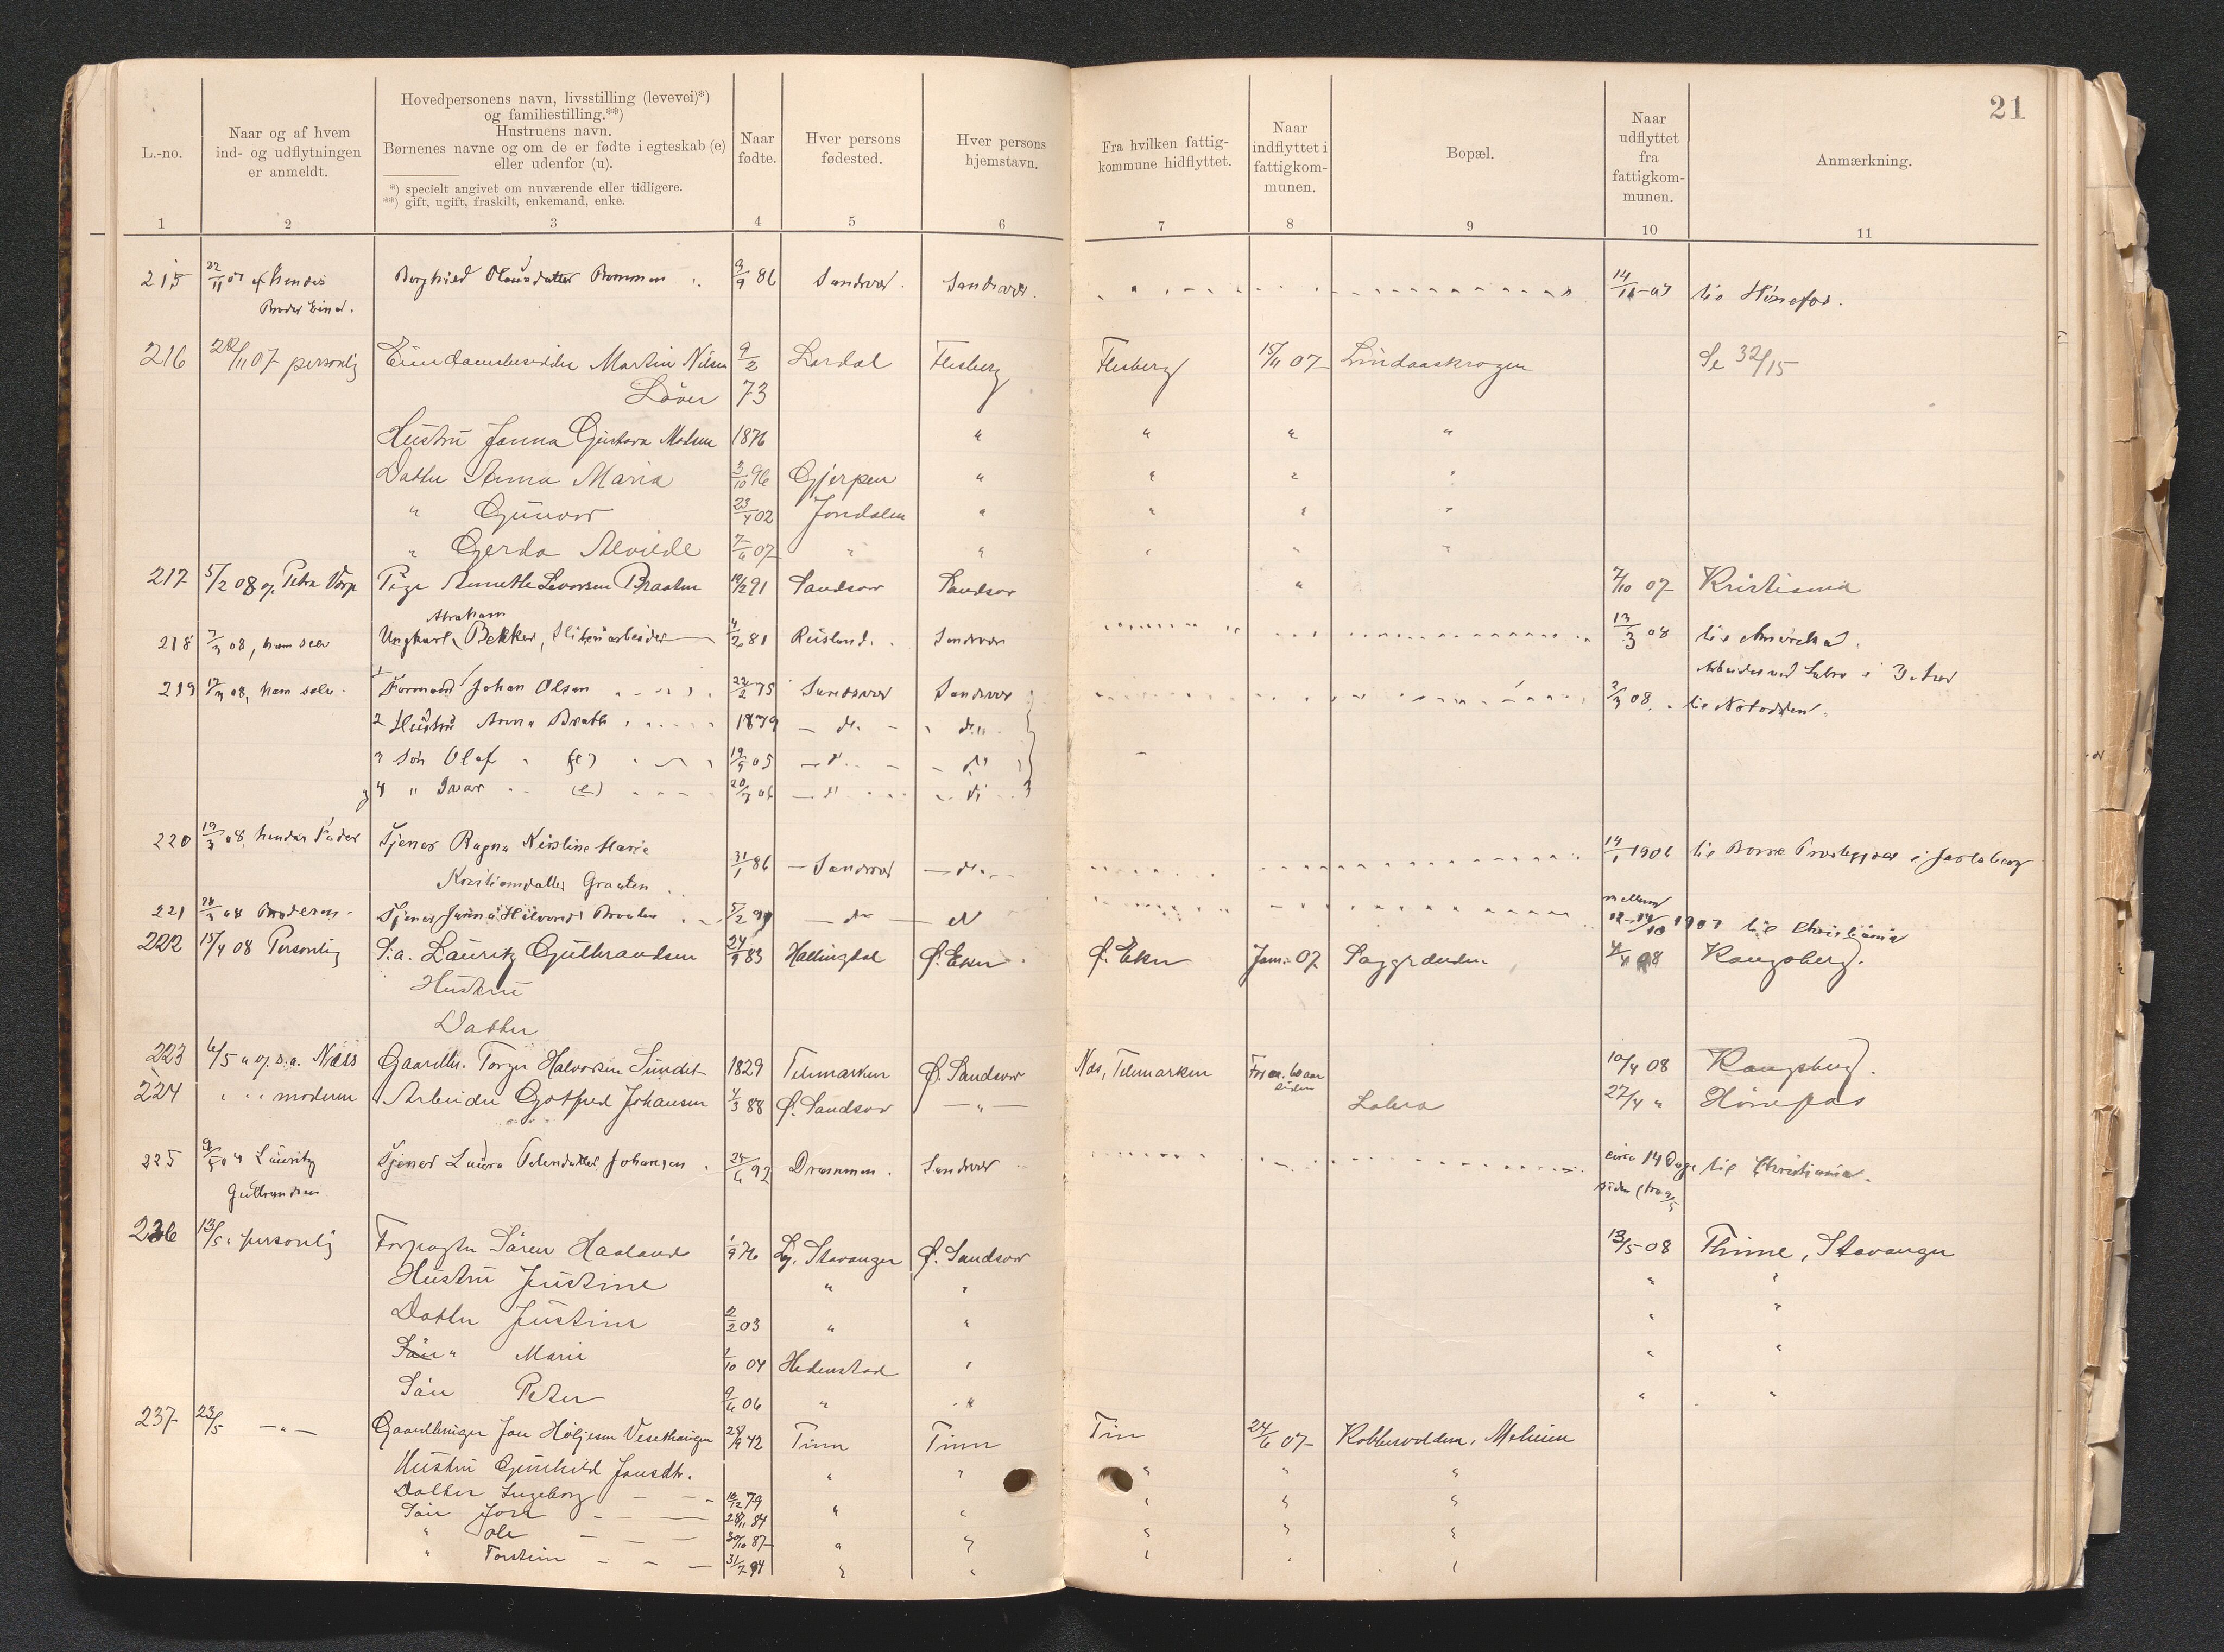 21
L.-no.
Naar og af hvem
ind- og udflytningen
er anmeldt.
Hovedpersonens navn, livsstilling (levevei)*)
og familiestilling.**)
Hustruens navn.
Børnenes navne og om de er fødte i egteskab (e)
eller udenfor (u).
*) specielt angivet om nuværende eller tidligere.
**) gift, ugift, fraskilt, enkemand, enke.
Naar
fødte.
Hver persons
fødested.
Hver persons
hjemstavn.
Fra hvilken fattig-
kommune hidflyttet.
Naar
indflyttet i
fattigkom-
munen.
Bopæl.
Naar
udflyttet
fra
fattigkom-
munen.
Anmærkning.
1 2 3 4 5 6 7 8 9 10 11
215 af hendes Borghild Olausdatter 3/9 86 Sandsvær Sandsvær 14/11-07 til Hönefos.
Broder Einar.
216 /11 07 personlig Martin Nilsen 9/2 Lardal Flesberg Flesberg 15/11 07 Lindaaskrogen Se 32/15
Löver 73
Hustru Janna Gustava Madsen 1876 " " " "
Datter Anna Maria 3/10 96 Gjerpen " " " "
" Gunvor 23/4 02 Jondalen " " " "
" Gerda Alvilde 7/6 07 " " " " "
217 5/2 08 af Petra Vorp Pige Annette Levorsen Braaten 10/2 91 Sandsvær Sandsvær " 7/10 07 Kristiania
Abraham
218 7/3 08, ham selv Ungkarl Bekker, Sliberiarbeider 4/2 81 Rusland. Sandsvær 13/3 08 til Amerika.
Arbeidet ved Labro i 3 Aar
219 17/3 08, ham selv. 1 Formand Johan Olsen 22/2 75 Sandsvær Sandsvær 2/3 08. til Notodden.
2 Hustru Anna 1879 — do. — do.
3 Sön Olaf (e) 19/5 05 — do — do
4 " Ivar (e) 20/7 06 — do — do
220 19/3 08, hendes Fader Tjener Ragna Kirstine Marie
Kristiansdatter Graaten 31/1 86 — Sandsvær — do. 14/1 1906 til Borre Præstegjæld i Jarlsberg
mellem
221 20/3 08 Moderen Tjener Braaten 5/2 91 — do — do 12-14/10 1907 til Christiania
222 15/4 08 Personlig S.a. Lauritz Gulbrandsen 24/9 83 Hallingdal Ö. Eker Ö. Eker Jan. 07 08 Kongsberg.
Hustru
Datter
223 6/5 " af s.a. Næss Gaardbr. Torger Halvorsen Sundet 1829 Telemarken Ö. Sandsvær Næs, Telemarken For ca. 60 aar 10/4 08 Kongsberg.
siden
224 " " moderen Arbeider Gotfred Johansen 4/3 88 Ö. Sandsvær — " — Labro 27/4 " Hönefos
225 Lauritz Tjener Laura Johansen 25/6 92 Drammen. Sandsvær circa 14 Dage til Christiania.
Gulbrandsen siden (fra 9/5
236 13/5 " personlig Forpagter Sören Haaland 1/9 76 Lg. Stavanger Ö. Sandsvær 13/5-08 Thime, Stavanger
Hustru Justine " " " "
Datter Justine 2/2 03 " " " "
Sön " Marie 1/10 04 Hedenstad " " "
Sön Peter 9/6 06 " " " "
237 23/5 — " — Gaardbruger Jon Höljesen Vesethaugen 28/9 42 Tinn Tinn Tin 24/6 07 Kobbervolden, Meheien
Hustru Gunhild Jonsdtr. " " " " "
Datter Ingeborg — — — 10/12 79 " " "
Sön Jon — — — 28/11 84 " "
" Ole — — — 30/10 87 " " " " "
" Torstein — — — 31/7 94 " " " " "